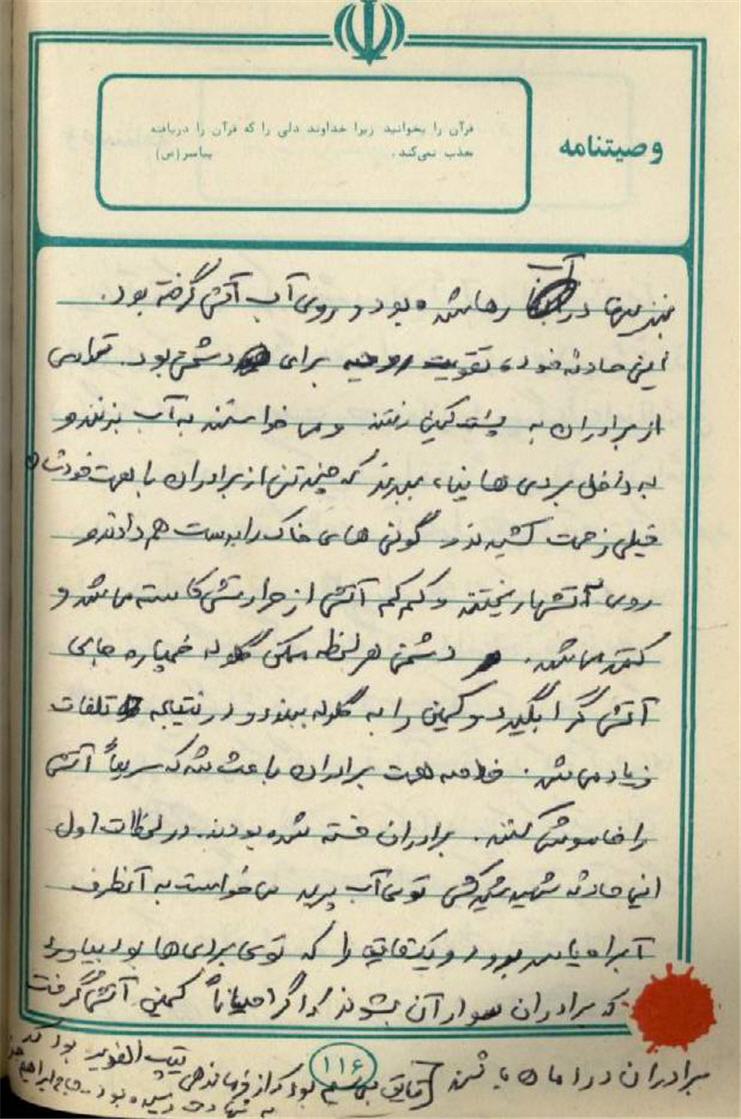 وصیتنامه
قرآن را بخوانید زیرا خداوند دلی را که قرآن را دریافته
معذب نمی‌کند. پیامبر(ص)
بنزینها در آب رها شده بود و روی آب آتش گرفته بود.
این حادثه خود، تقویت روحیه برای دشمن بود. تمامی
از برادران به پشت کمین رفتند و می خواستند به آب بزنند و
به داخل بردی ها بیایند که چند تن از برادران با همت خودشان
خیلی زحمت کشیدند و گونی های خاک را بدست هم دادند و
روی آتشها ریختند و کم کم آتش از حرارتش کاسته می شد و
کمتر می شد. دشمن هر لحظه ممکن گلوله خمپاره جای
آتش گرا بگیرد و کمین را به گلوله ببندد و در نتیجه تلفات
زیاد می شد. خلاصه همت برادران باعث شد که سریعاً آتش
را خاموش کنند. برادران خسته شده بودند. در لحظات اول
این حادثه شهید توی آب پرید می خواست به آنطرف
آبراه یا برود و یک قایق را که توی بردی ها بود بیاورد
که برادران سوار آن بشوند که اگر احیاناً کمین آتش گرفت
برادران در امان باشند [قایق بی سیم بود که از فرماندهی تیپ الغدیر بود که
به شهادت رسیده بود - حاج ابراهیم
۱۱۶